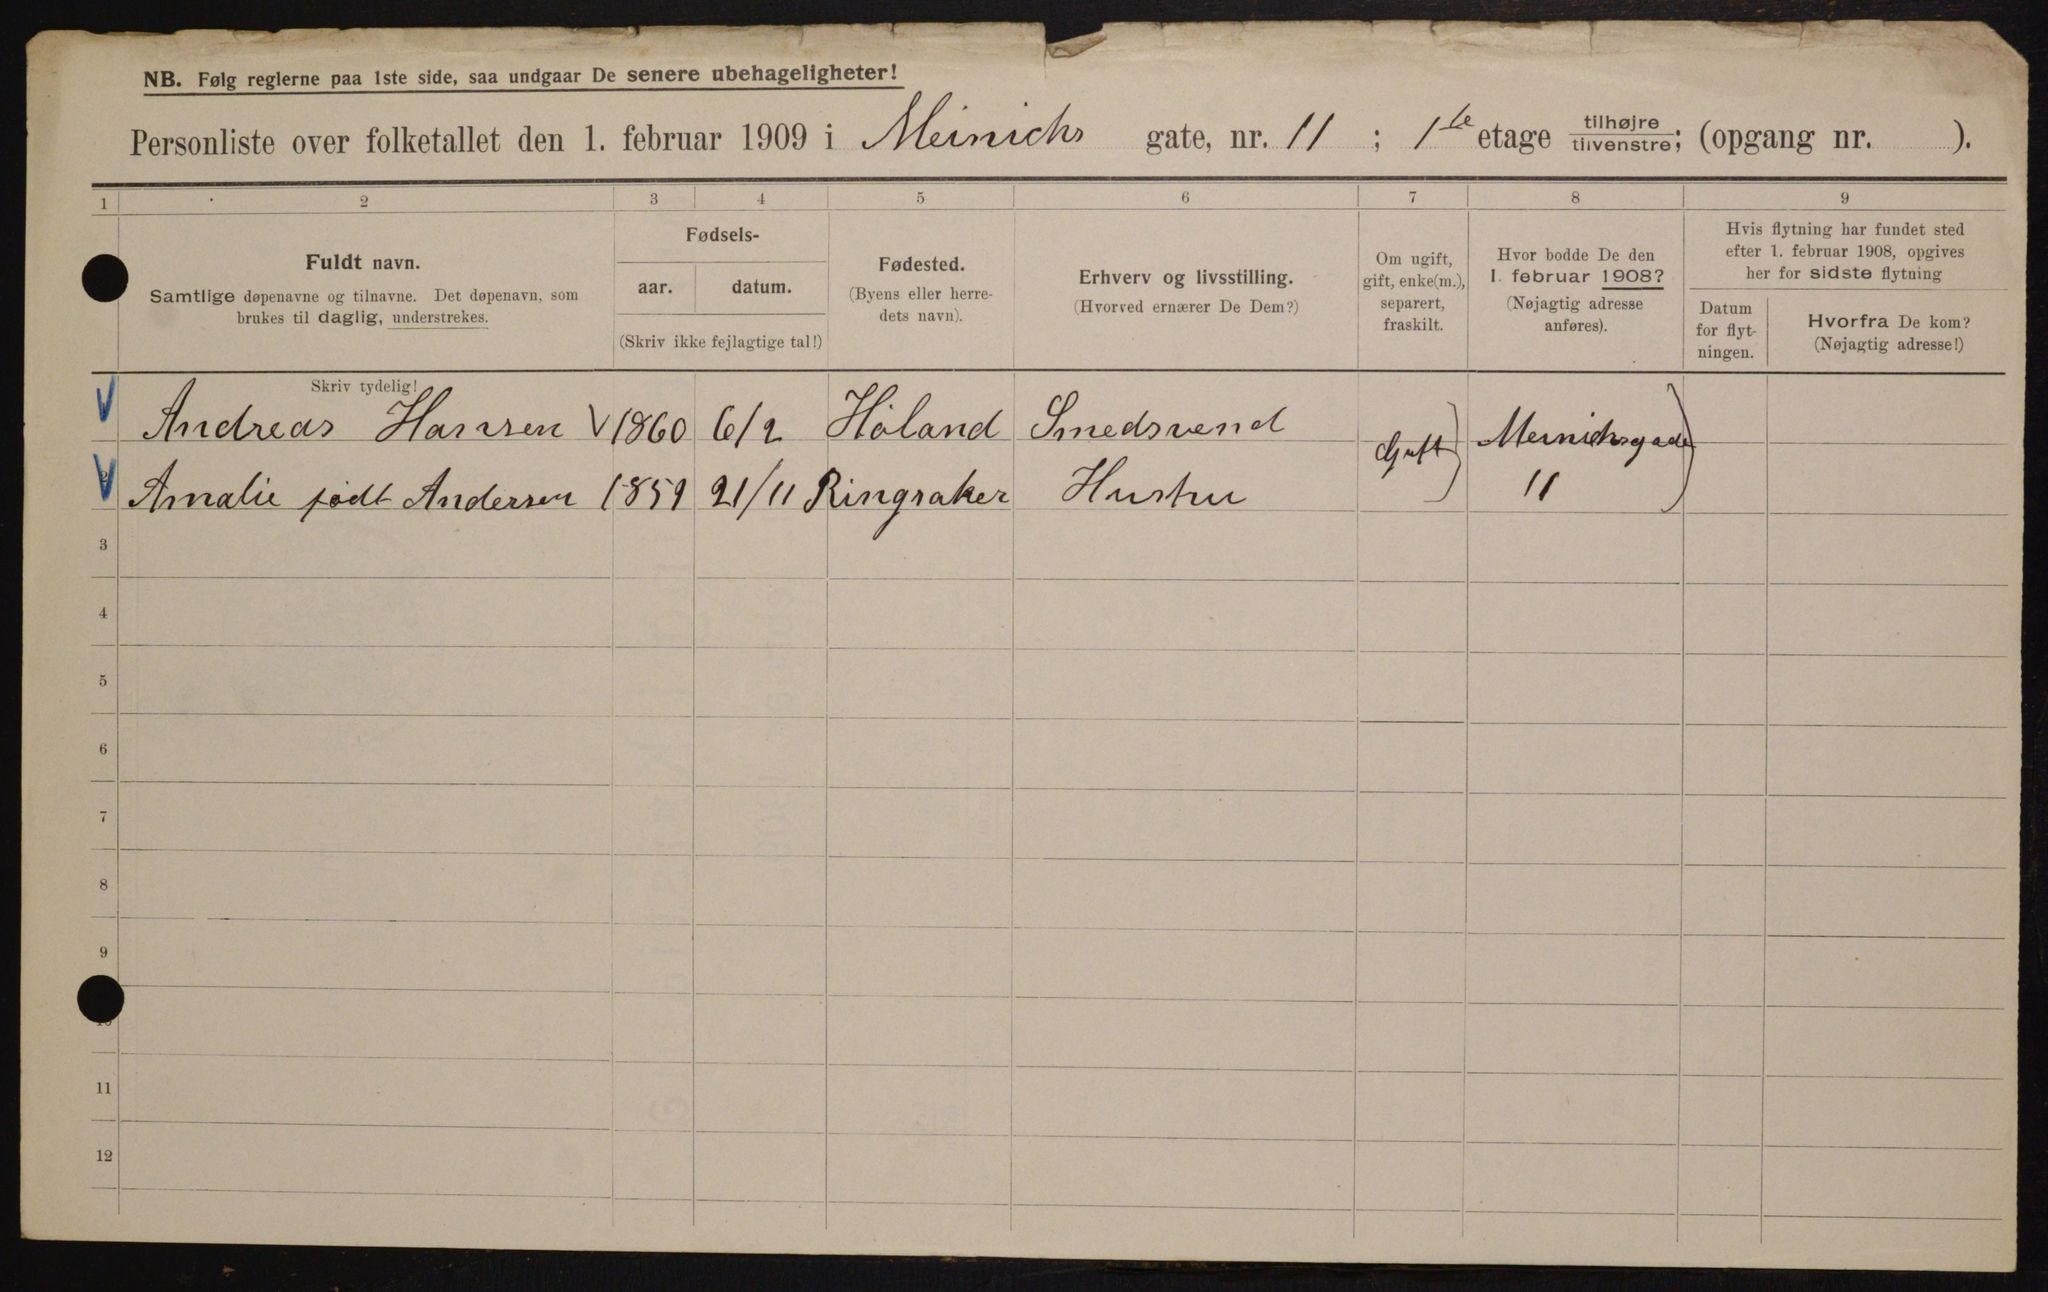 NB. Følg reglerne paa 1ste side, saa undgaar De senere ubehageligheter!
Personliste over folketallet den 1. februar 1909 i Meinichs gate, nr. 11 ; 1ste etage tilhøjre / tilvenstre; (opgang nr. ).
1 2 3 4 5 6 7 8 9
Fuldt navn.
Samtlige døpenavne og tilnavne. Det døpenavn, som
brukes til daglig, understrekes.
Skriv tydelig!
Fødsels-
aar. datum.
(Skriv ikke fejlagtige tal!)
Fødested.
(Byens eller herre-
dets navn).
Erhverv og livsstilling.
(Hvorved ernærer De Dem?)
Om ugift,
gift, enke(m.),
separert,
fraskilt.
Hvor bodde De den
1. februar 1908?
(Nøjagtig adresse
anføres).
Hvis flytning har fundet sted
efter 1. februar 1908, opgives
her for sidste flytning
Datum
for flyt-
ningen.
Hvorfra De kom?
(Nøjagtig adresse!)
Andreas Hansen V 1860 6/2 Høland Smedsvend Gift Meinichsgade
Amalie født Andersen 1859 21/11 Ringsaker Hustru 11
3
4
5
6
7
8
9
10
11
12